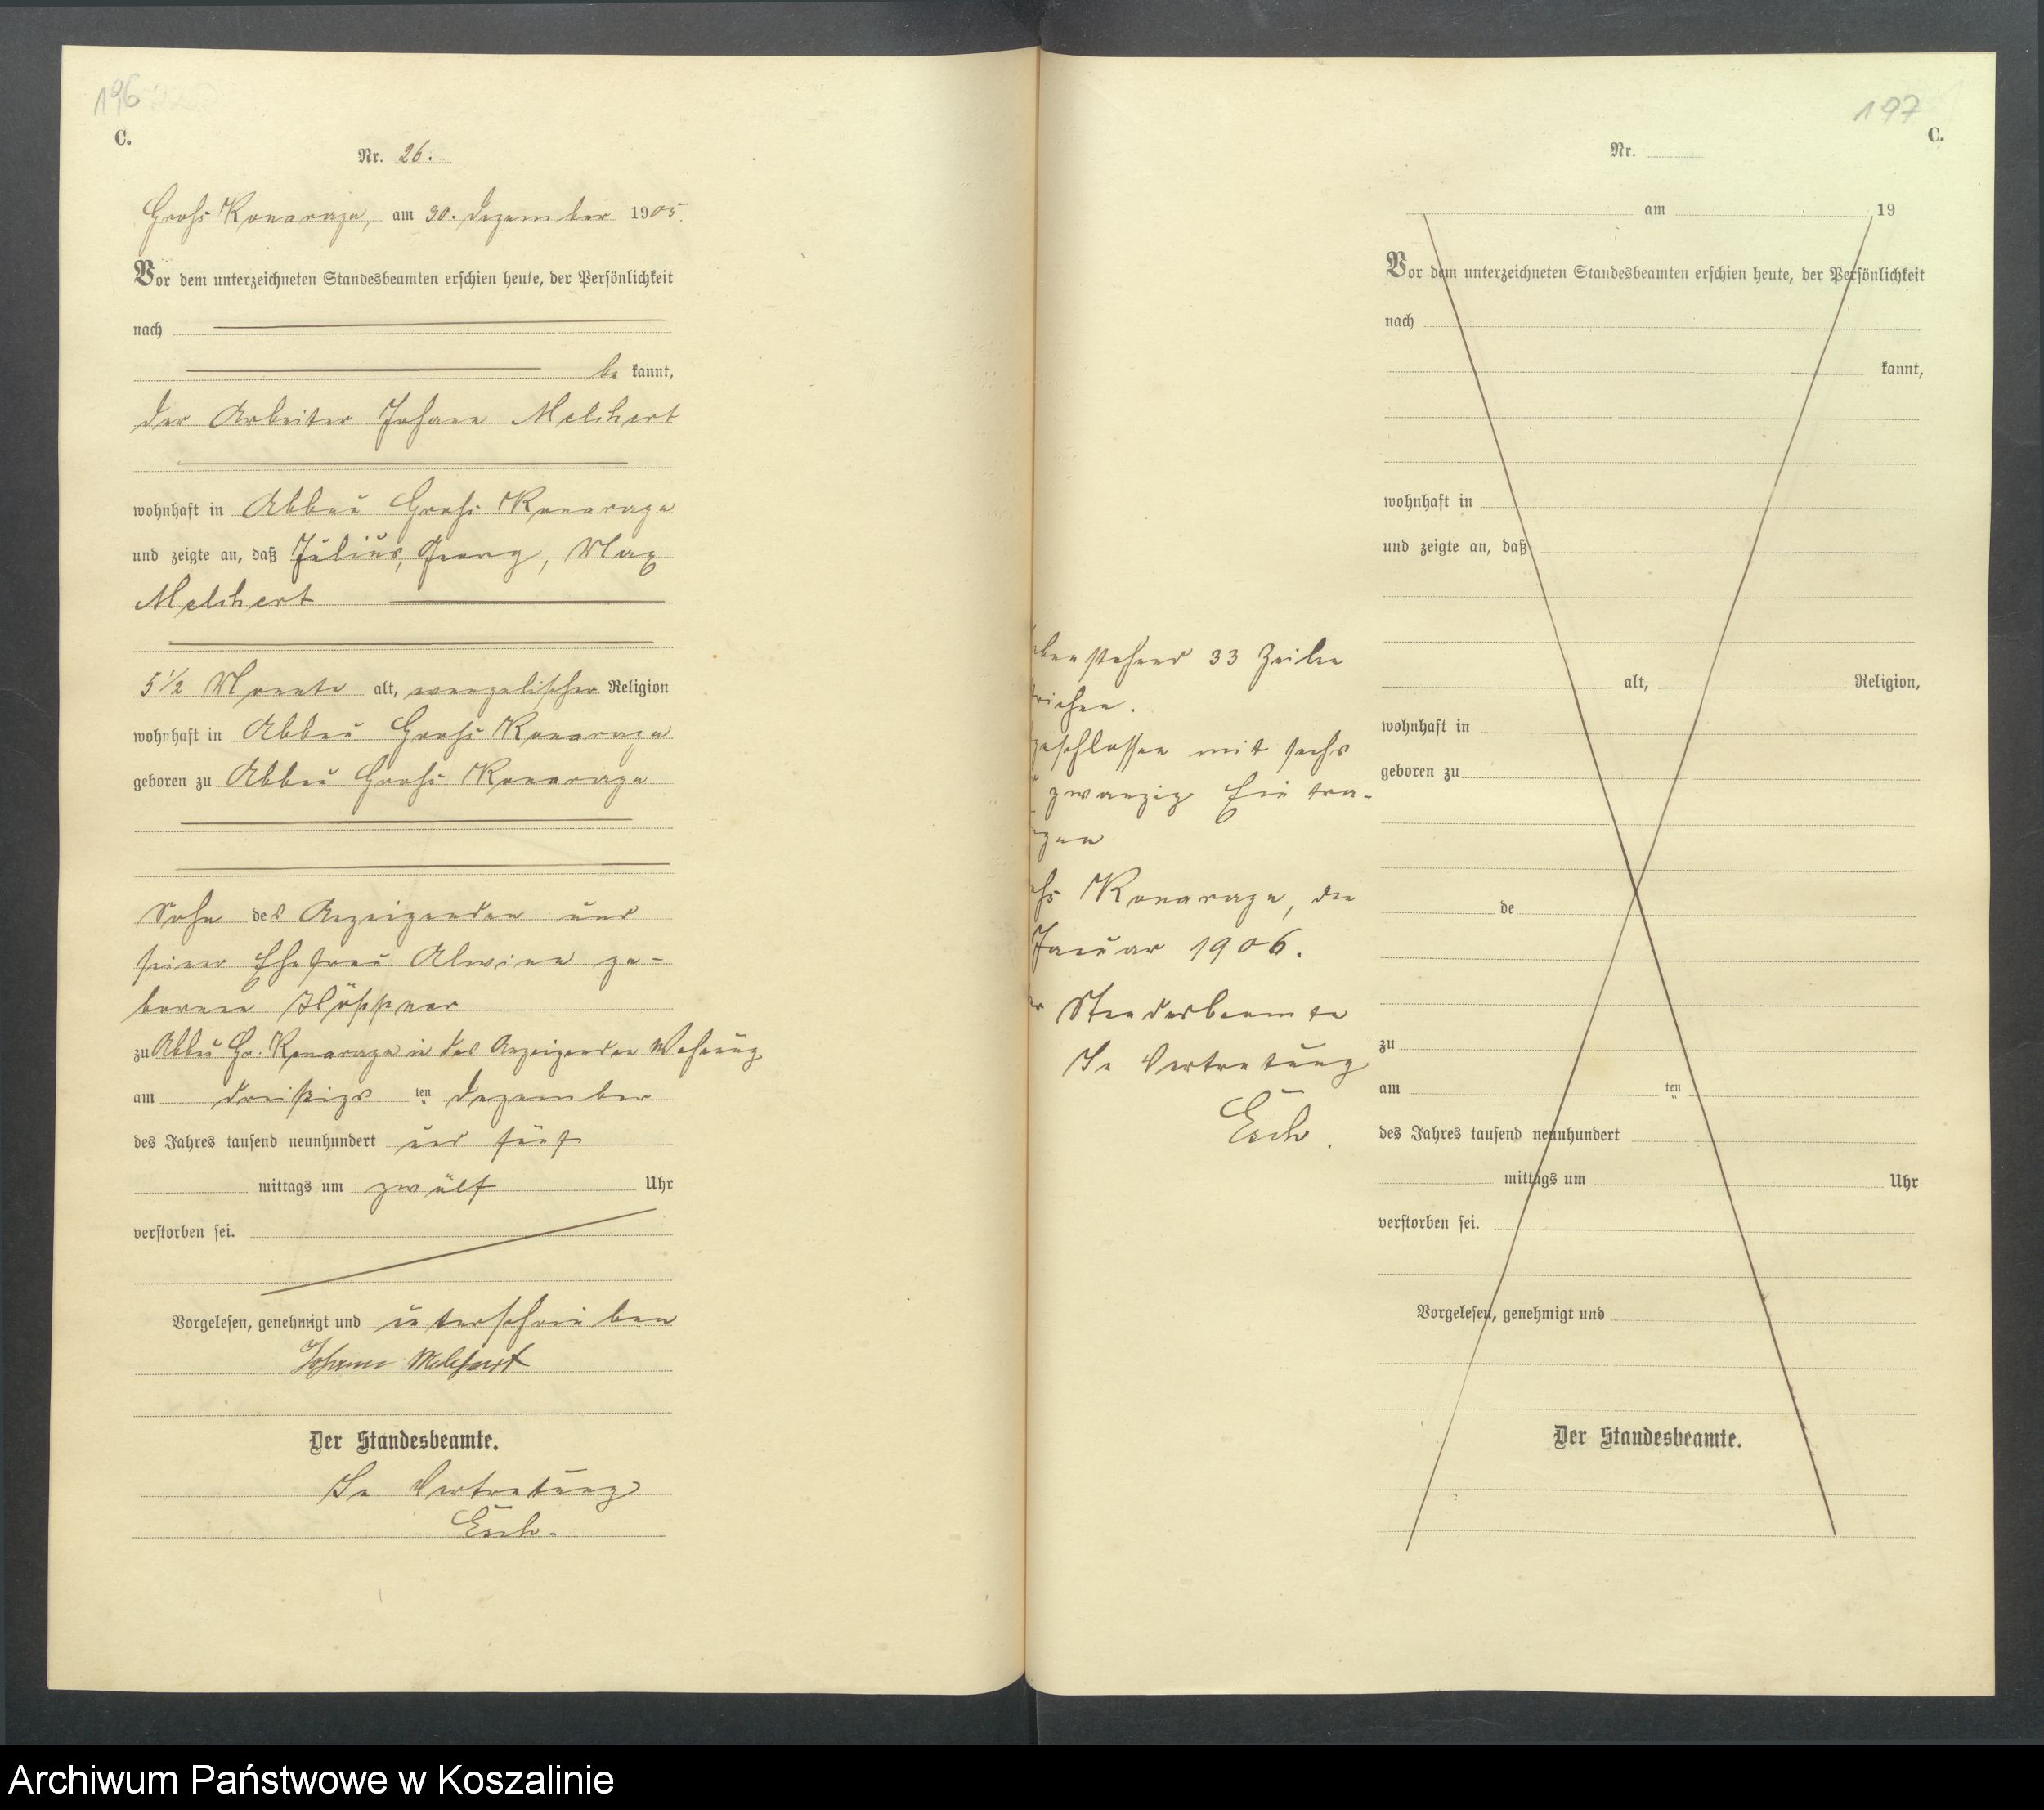 196
C.
Nr. 26.
Groß Konarzyn, am 30. Dezember 1905.
Vor dem unterzeichneten Standesbeamten erschien heute, der Persönlichkeit
nach
be kannt,
der Arbeiter Johann Melchert
wohnhaft in Abbau Groß Konarzyn
und zeigte an, daß Julius, Georg, Max
Melchert
5 1/2 Monate alt, evangelischer Religion
wohnhaft in Abbau Groß Konarzyn
geboren zu Abbau Groß Konarzyn
Sohn des Anzeigenden und
seiner Ehefrau Alwine ge-
borene
zu Abbau Gr. Konarzyn in des Anzeigenden Wohnung
am dreißigs ten Dezember
des Jahres tausend neunhundert und fünf
mittags um zwölf Uhr
verstorben sei.
Vorgelesen, genehmigt und unterschrieben
Johann Melchert
Der Standesbeamte.
In Vertretung
197
C.
Nr.
am 19
Vor dem unterzeichneten Standesbeamten erschien heute, der Persönlichkeit
nach
kannt,
wohnhaft in
und zeigte an, daß
alt, Religion,
wohnhaft in
geboren zu
de
zu
am ten
des Jahres tausend neunhundert
mittags um Uhr
verstorben sei.
Vorgelesen, genehmigt und
Der Standesbeamte.
benstehend 33 Zeilen
richen.
geschlossen mit sechs
zwanzig Eintra-
gen
oß Konarzyn, den
Januar 1906.
er Standesbeamte
In Vertretung
Archiwum Państwowe w Koszalinie